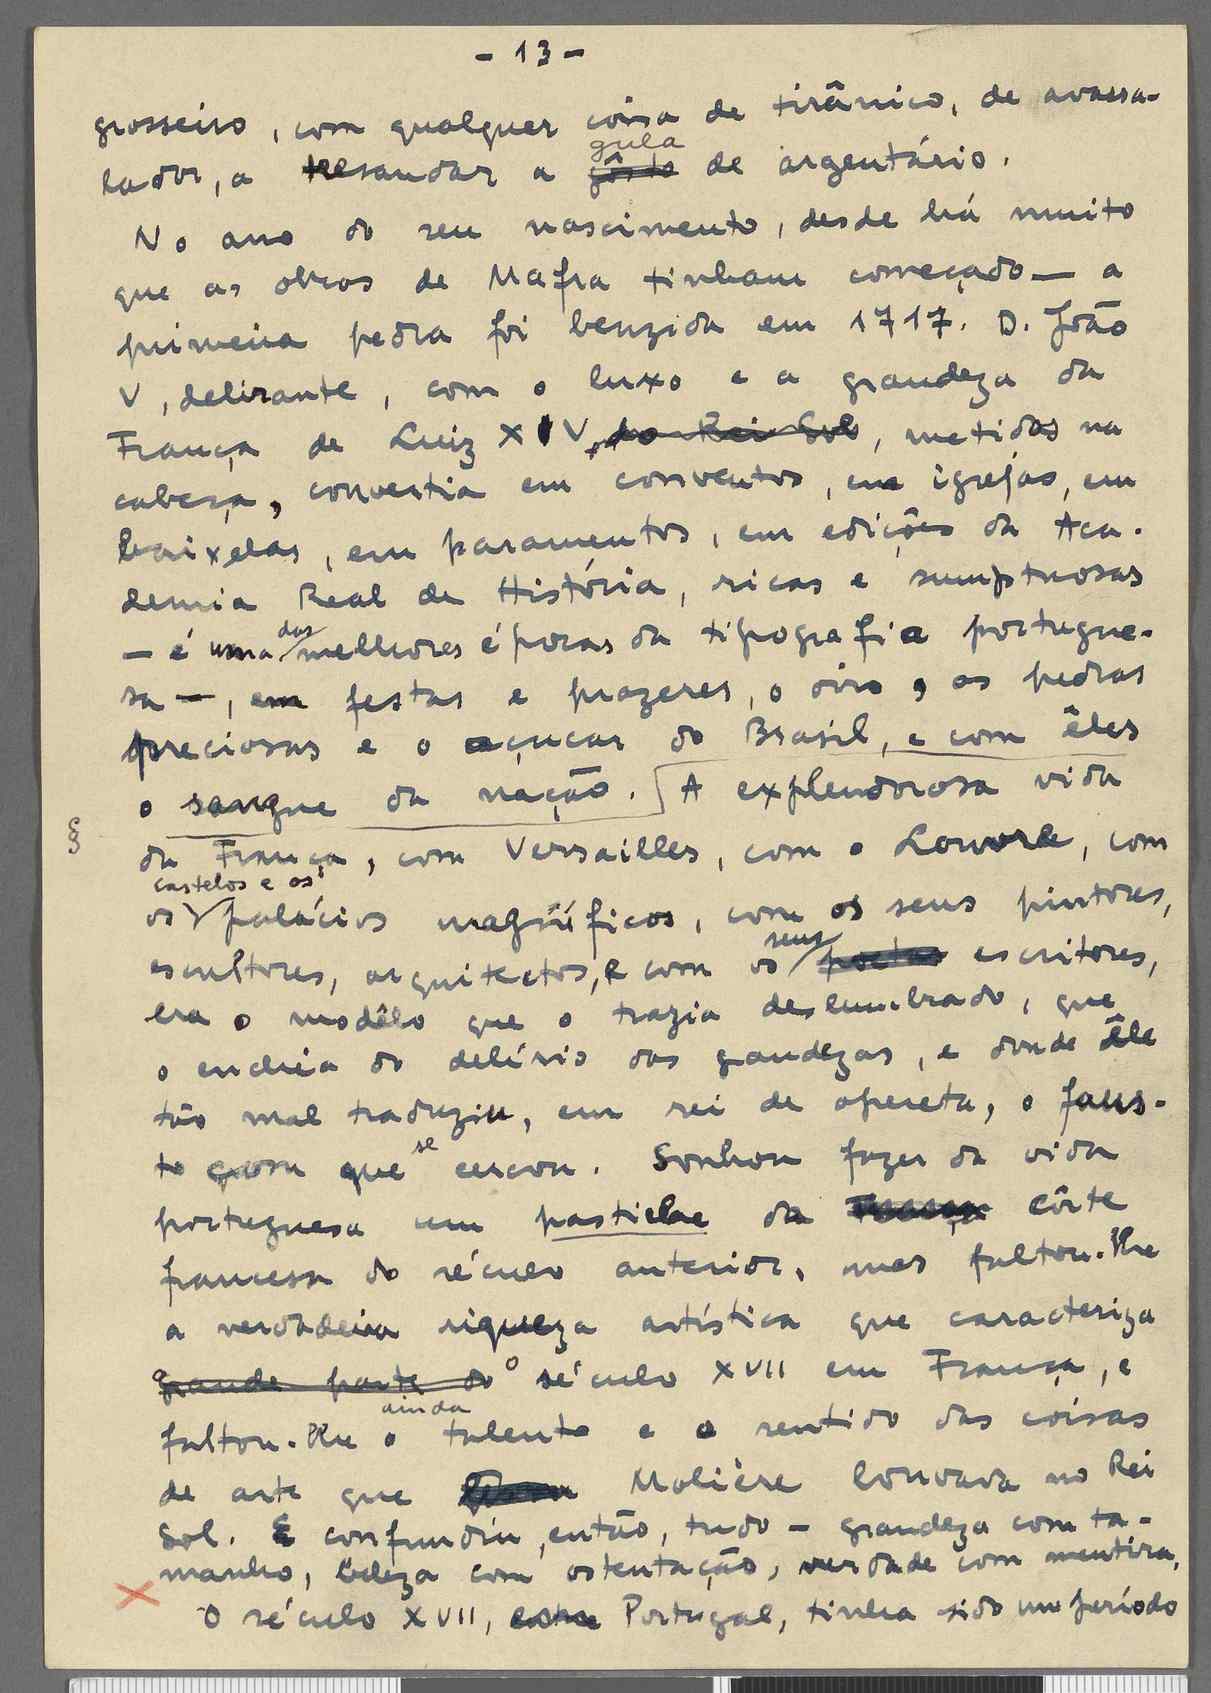 - 13 -
grosseiro, com qualquer coisa de tirânico, de avassa-
lador, a tresandar a gula de argentário.
No ano do seu nascimento, desde há muito
que as obras de Mafra tinham começado — a
primeira pedra foi benzida em 1717. D. João
V, delirante, com o luxo e a grandeza da
França de Luiz XIV, do Rei Sol, metidos na
cabeça, convertia em conventos, em igrejas, em
baixelas, em paramentos, em edições da Aca-
demia Real de História, ricas e sumptuosas
— é uma das melhores épocas da tipografia portugue-
sa —, em festas e prazeres, o oiro, as pedras
preciosas e o açucar do Brasil, e com êles
o sangue da nação. A explendorosa vida
§
da França, com Versailles, com o Louvre, com
os castelos e os palácios magníficos, com os seus pintores,
escultores, arquitectos, e com os seus poetas escritores,
era o modêlo que o trazia deslumbrado, que
o enchia do delírio das grandezas, e donde êle
tão mal traduziu, em rei de opereta, o faus-
to com que se cercou. Sonhou fazer da vida
portuguesa um pastiche da França côrte
francesa do século anterior, mas faltou-lhe
a verdadeira riqueza artística que caracteriza
grande parte do o século XVII em França, e
faltou-lhe ainda o talento e o sentido das coisas
de arte que Molière louvava no Rei
Sol. E confundiu, então, tudo — grandeza com ta-
manho, beleza com ostentação, verdade com mentira.
O século XVII, Portugal, tinha sido um período